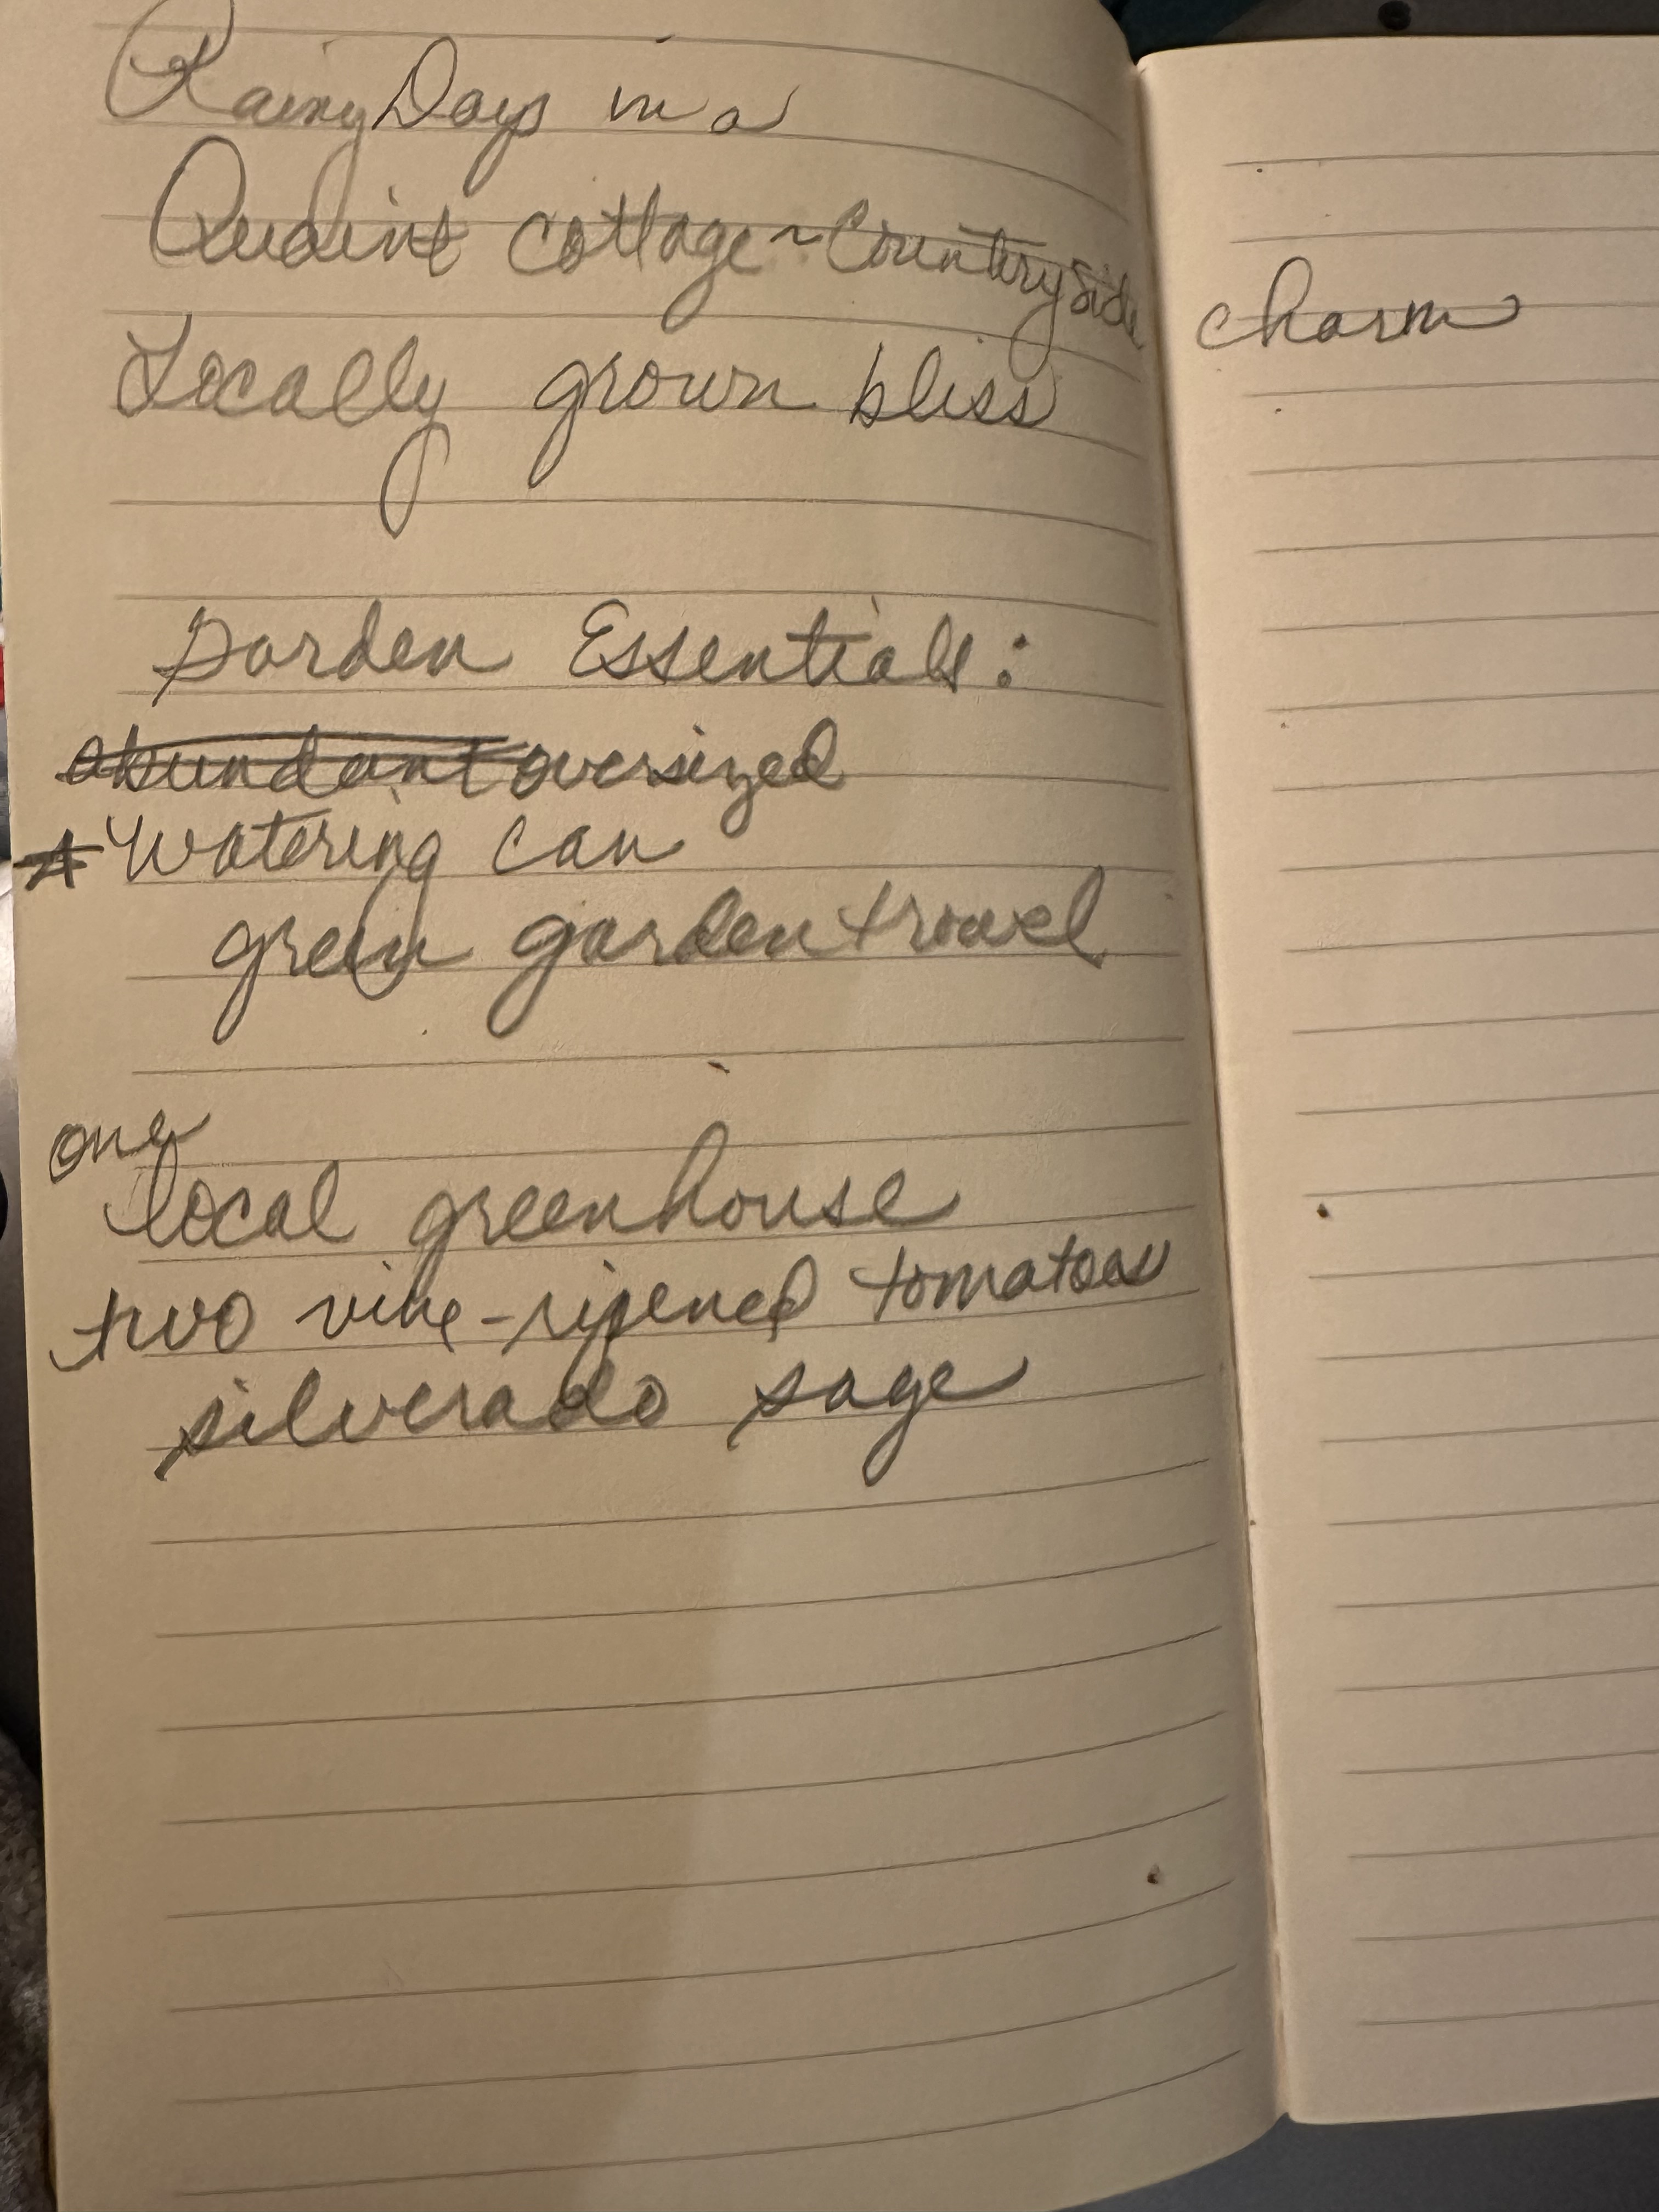 Rainy Days in a
Quaint cottage ~ Countryside charm
Locally grown bliss
Garden Essentials:
abundant oversized
* Watering can
green garden trowel
one
local greenhouse
two vine-ripened tomatoes
silverado sage